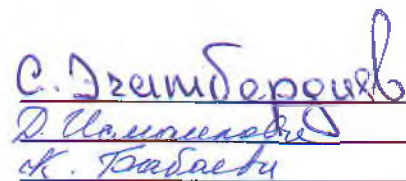 С. Эгамбердиев
Д. Исмоилова
К. Бабаева